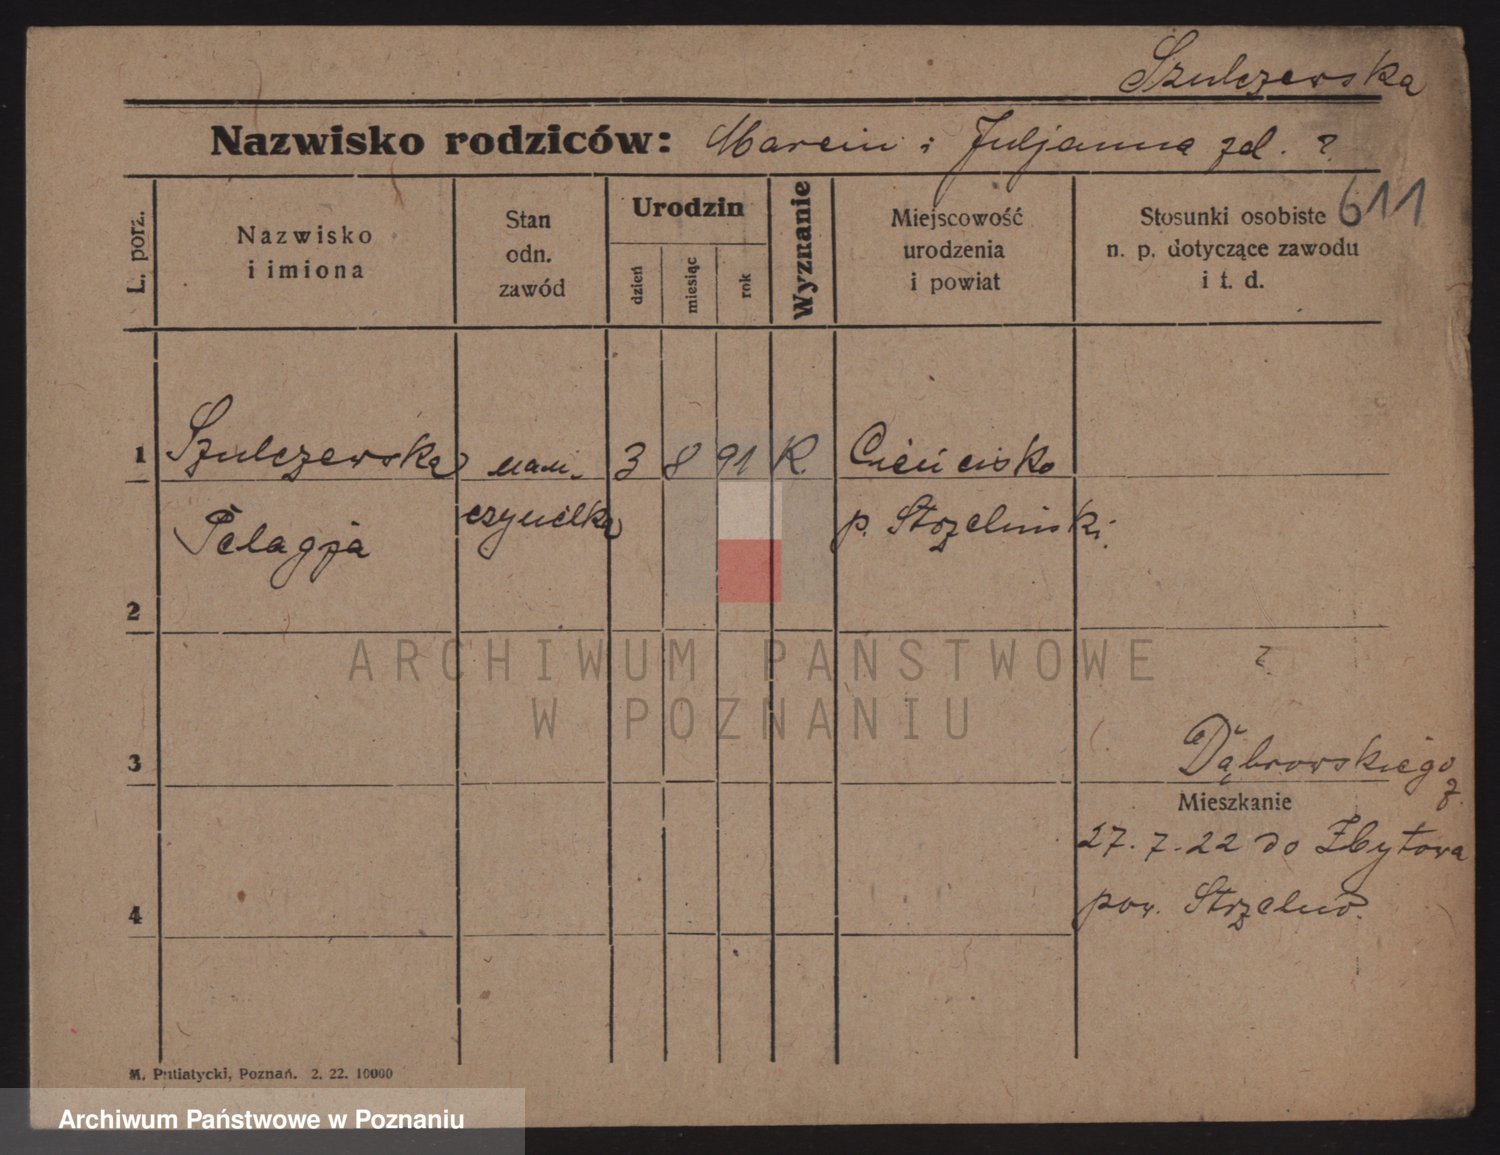 Szulczewska
Nazwisko rodziców: Marcin i Juljanna zd. ?
611
L. porz.
Nazwisko
i imiona
Stan
odn.
zawód
Urodzin
dzień
miesiąc
rok
Wyznanie
Miejscowość
urodzenia
i powiat
Stosunki osobiste
n. p. dotyczące zawodu
i t. d.
1 Szulczewska nau- 3 8 91 K. Cieńcisko
Pelagja czycielka p. Strzeliński.
2
?
3
Dąbrowskiego
Mieszkanie
27.7.22 do Zbytowa
pow. Strzelno.
4
ARCHIWUM PAŃSTWOWE
W POZNANIU
M. Putiatycki, Poznań. 2. 22. 10000
Archiwum Państwowe w Poznaniu